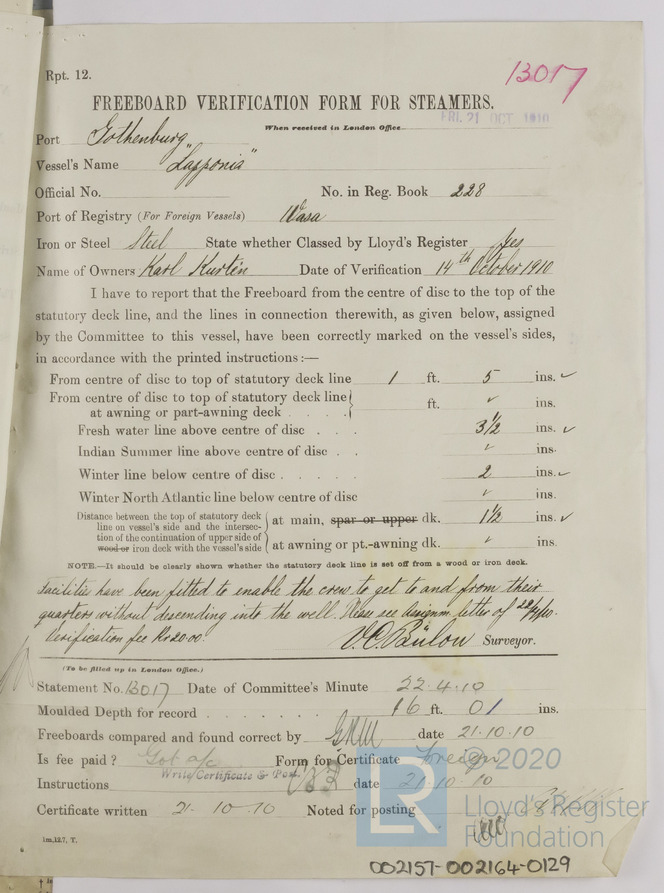 Rpt. 12.
13017
FREEBOARD VERIFICATION FORM FOR STEAMERS.
When received in London Office
FRI. 21 OCT 1910
Port Gothenburg
Vessel's Name "Lapponia"
Official No. No. in Reg. Book 228
Port of Registry (For Foreign Vessels) Wasa
Iron or Steel Steel State whether Classed by Lloyd's Register Yes
Name of Owners Karl Kurtén Date of Verification 14th October 1910
I have to report that the Freeboard from the centre of disc to the top of the
statutory deck line, and the lines in connection therewith, as given below, assigned
by the Committee to this vessel, have been correctly marked on the vessel's sides,
in accordance with the printed instructions :—
From centre of disc to top of statutory deck line 1 ft. 5 ins. ✓
From centre of disc to top of statutory deck line
at awning or part-awning deck . . . . ft. ✓ ins.
Fresh water line above centre of disc . . . 3 1/2 ins. ✓
Indian Summer line above centre of disc . . ✓ ins.
Winter line below centre of disc . . . . 2 ins. ✓
Winter North Atlantic line below centre of disc ✓ ins.
Distance between the top of statutory deck
line on vessel's side and the intersec-
tion of the continuation of upper side of
wood or iron deck with the vessel's side
at main, spar or upper dk. 1 1/2 ins. ✓
at awning or pt.-awning dk. ✓ ins.
NOTE.—It should be clearly shown whether the statutory deck line is set off from a wood or iron deck.
Facilities have been fitted to enable the crew to get to and from their
quarters without descending into the well. Please see Assignm. letter of
Verification fee Kr 20.00. Surveyor.
(To be filled up in London Office.)
Statement No. 13017 Date of Committee's Minute 22.4.10
Moulded Depth for record . . . . . . . 16 ft. 01 ins.
Freeboards compared and found correct by date 21.10.10
Is fee paid ? Got a/c Form for Certificate Foreign
Write Certificate & Post.
Instructions date 21.10.10
Certificate written 21.10.10 Noted for posting
1m,12.7, T.
LR
© 2020
Lloyd's Register
Foundation
002157-002164-0129